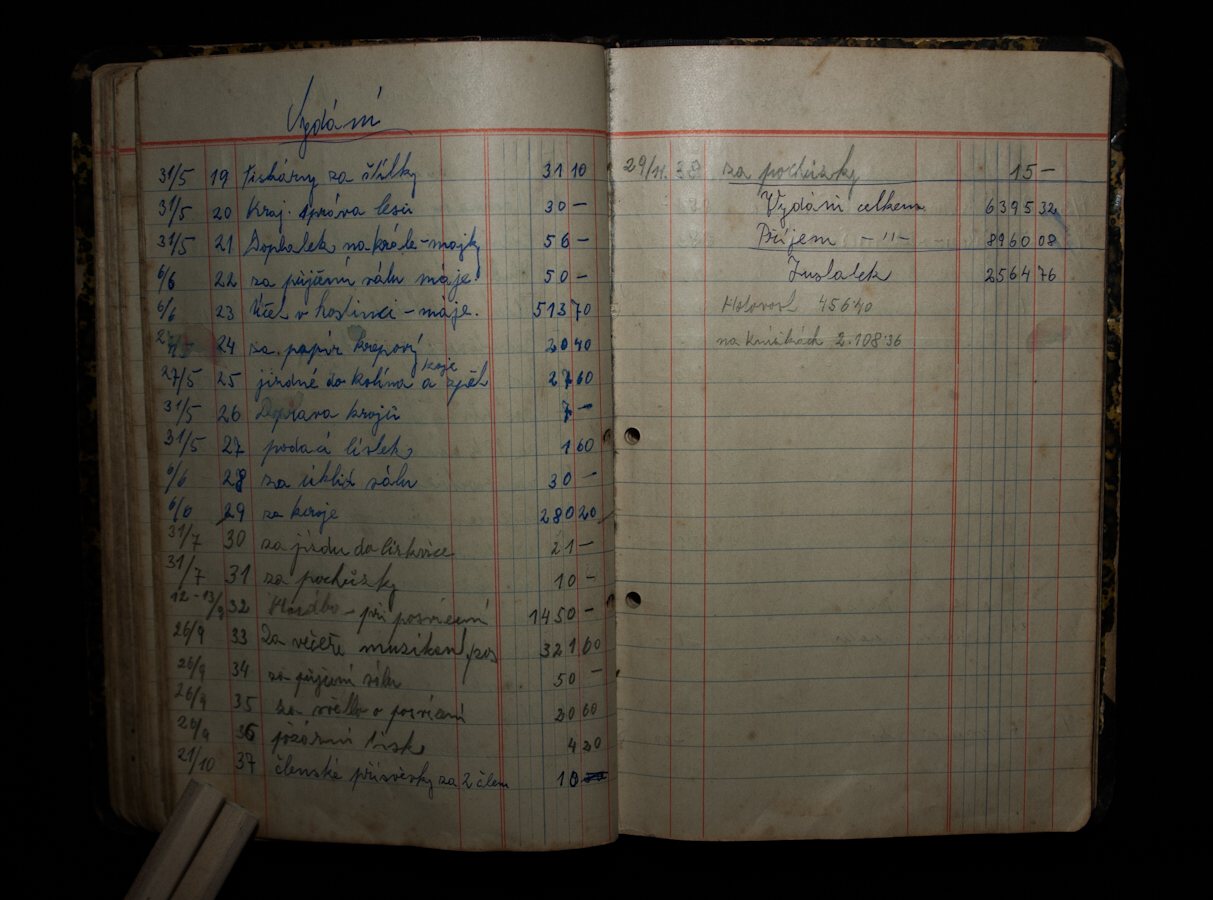 Vydání
31/5 19 tiskárny za štítky 31 10
31/5 20 Kraj. správa lesů 30 —
31/5 21 Doplatek na krále-majky 56 —
6/6 22 za půjčení sálu máje. 50 —
6/6 23 Účet v hostinci - máje. 513 70
24 za papír krepový 20 40
27/5 25 jízdné do Kolína a zpět kroje 27 60
31/5 26 Doprava krojů 7 —
31/5 27 podací lístek 1 60
6/6 28 za úkliz sálu 30 —
6/6 29 za kroje 280 20
31/7 30 za jízdu do Církvice 21 —
31/7 31 za pochůzky 10 —
12-13/9 32 Hudba - při posvícení 1450 —
26/9 33 Za večeře muzikant pos 321 60
26/9 34 za půjčení sálu 50 —
26/9 35 za světlo o posvícení 20 60
20/9 36 požární tisk 4 20
21/10 37 členské příspěvky za 2 člen 10
29/11. 38 za pochůzky 15 —
Vydání celkem 6395 32
Příjem — " — 8960 08
Zustatek 2564 76
Hotovost 456 40
na knížkách 2.108 36